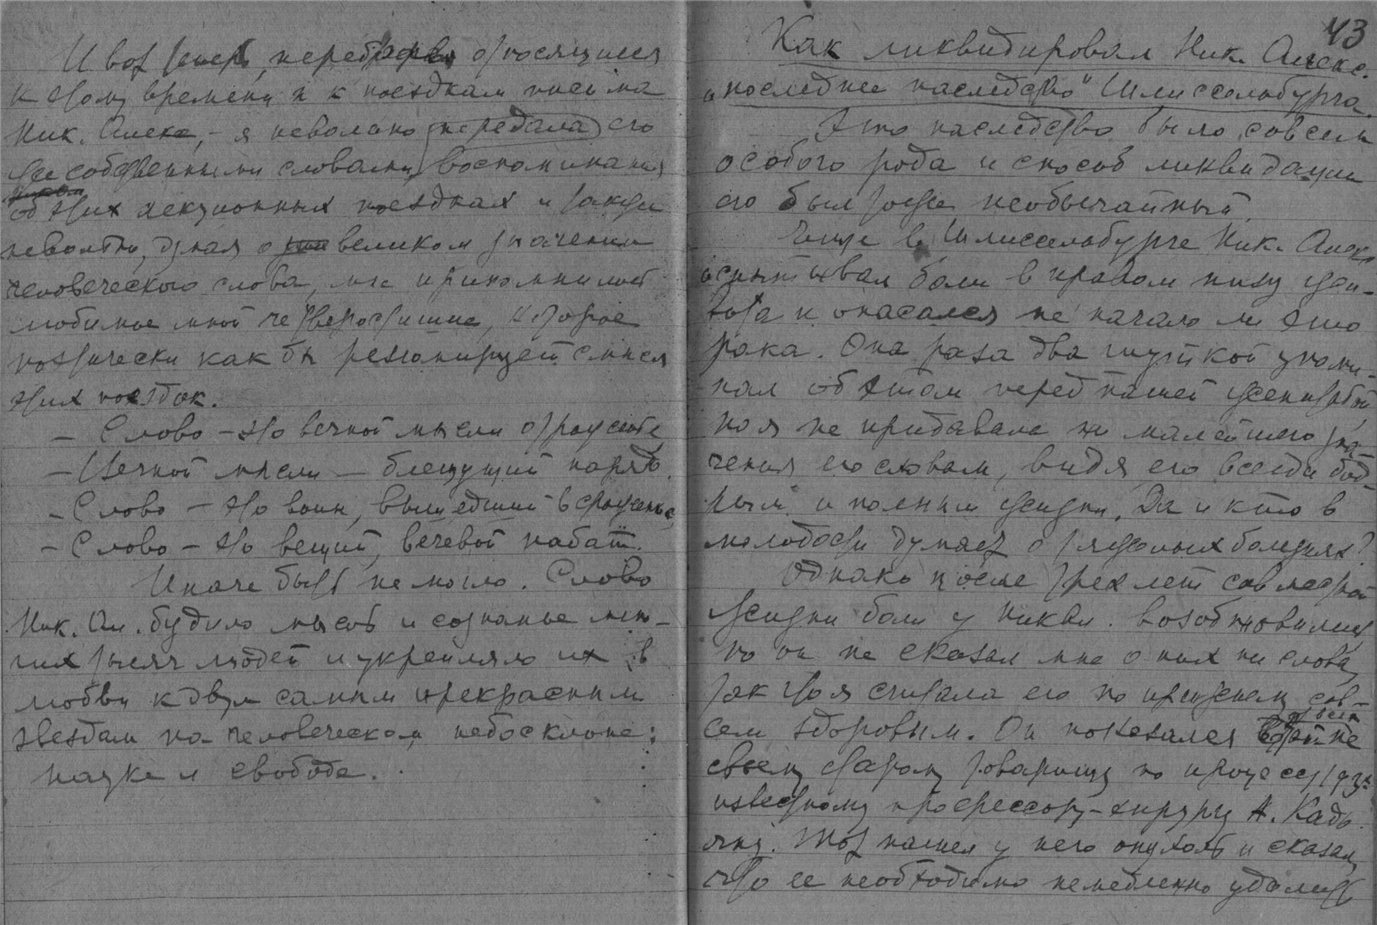 И вот теперь, перебирая относящиеся
к этому времени и к поездкам письма
Ник. Алекс., – я невольно передала его
же собственными словами воспоминания
об этих лекционных поездках и также
невольно, думая о великом значении
человеческого слова, мне припомнилось
любимое мной четверостишие, которое
поэтически как бы резюмирует смысл
этих поездок.
– Слово – это вечной мысли отраженье
– Вечной мысли – блещущий наряд.
– Слово – это воин, вышедший в сраженье
– Слово – это вещий, вечевой набат.
Иначе быть не могло. Слово
Ник. Ал. будило мысль и сознанье мно-
гих тысяч людей и укрепляло их в
любви к двум самым прекрасным
звездам на человеческом небосклоне:
науке и свободе.
43
Как ликвидировал Ник. Алекс.
„последнее наследство" Шлиссельбурга.
Это наследство было совсем
особого рода и способ ликвидации
его был тоже необычайный.
Еще в Шлиссельбурге Ник. Алекс
испытывал боли в правом низу жи-
вота и опасался не начало ли это
рака. Он раза два шуткой упоми-
нал об этом перед нашей женитьбой
но я не придавала ни малейшего зна-
чения его словам, видя его всегда бод-
рым и полным жизни. Да и кто в
молодости думает о тяжелых болезнях?
Однако после трех лет совместной
жизни боли у Никол. возобновились
но он не сказал мне о них ни слова,
так что я считала его по прежнему сов-
сем здоровым. Он показался
своему старому товарищу по процессу 193х
известному профессору-хирургу А. Кадь
яну. Тот нашел у него опухоль и сказал,
что ее необходимо немедленно удалить